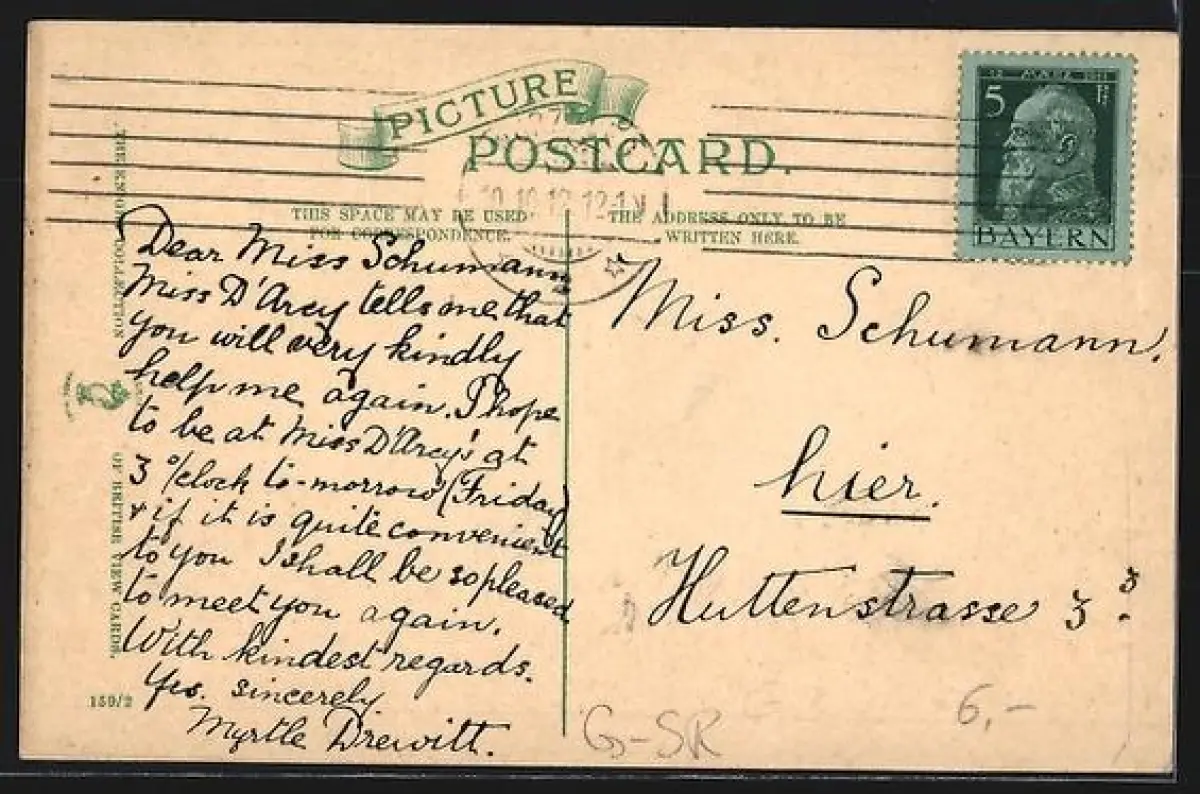 PICTURE
POSTCARD.
12 MARZ 1911
5 Pf
BAYERN
10.10.12. 12-1 N
THIS SPACE MAY BE USED
FOR CORRESPONDENCE.
THE ADDRESS ONLY TO BE
WRITTEN HERE.
Dear Miss Schumann
Miss D'Arcy tells me that
you will very kindly
help me again. I hope
to be at Miss D'Arcy's at
3 o/clock to-morrow (Friday)
& if it is quite convenient
to you I shall be so pleased
to meet you again.
With kindest regards.
Yrs. sincerely
Myrtle Drewitt.
Miss. Schumann.
hier.
Huttenstrasse 3 3.
COLLECTION
OF BRITISH VIEW CARDS.
159/2
G-SR
6,-